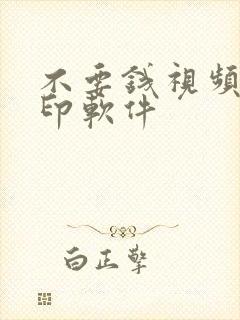 不要錢視頻
印軟件
白正擎